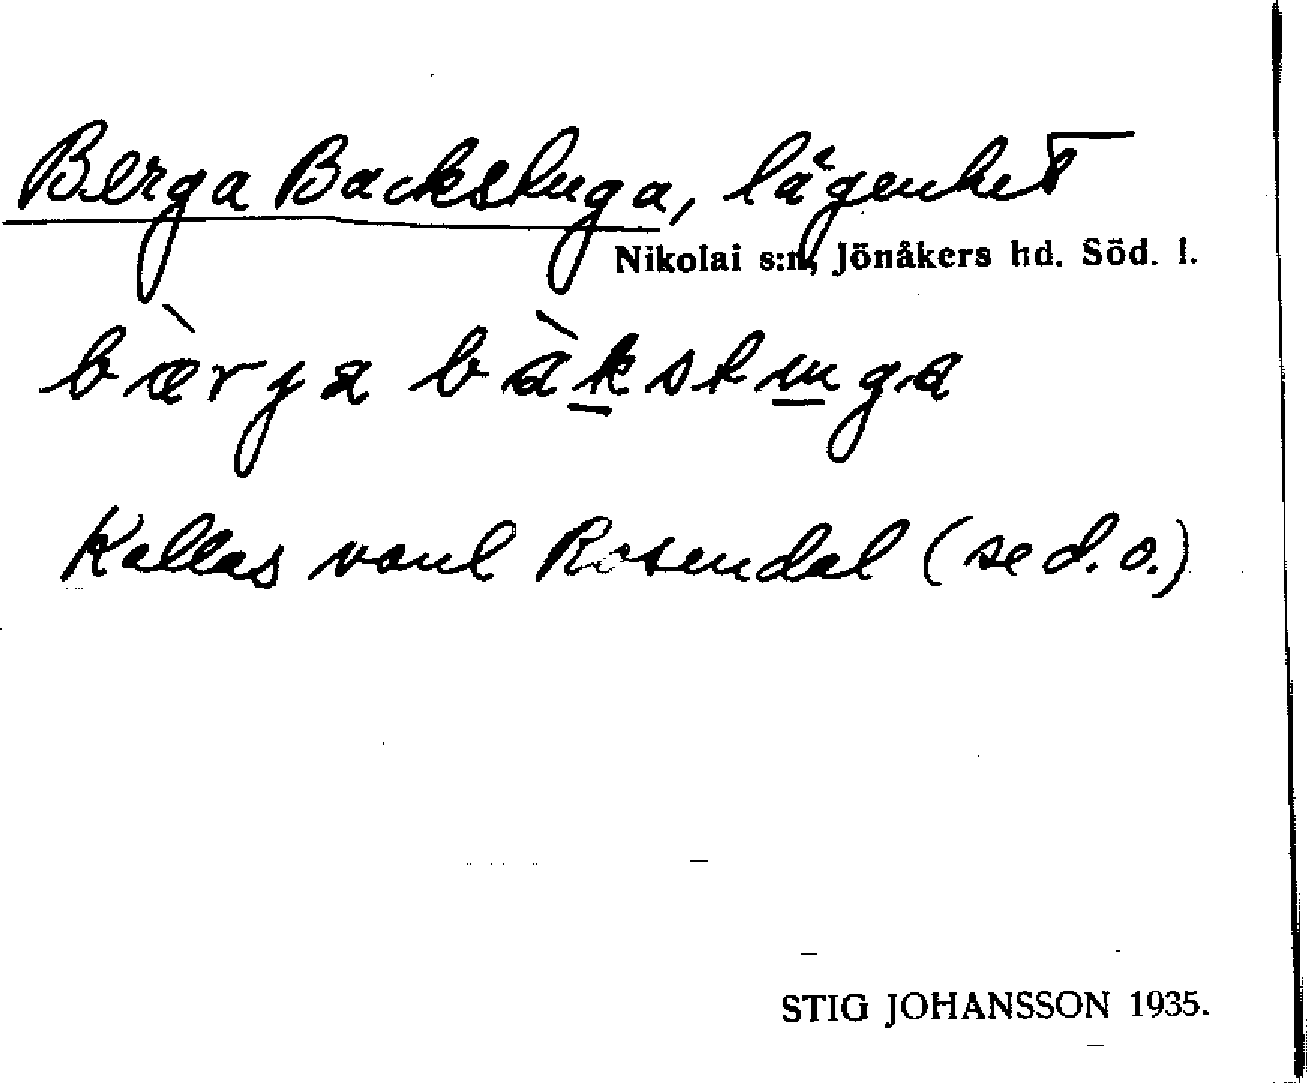 Berga Backstuga, lägenhet
Nikolai s:n, Jönåkers hd. Söd. l.
bæ̀rja bàkstuga
Kallas vanl Rosendal (se d.o.)
STIG JOHANSSON 1935.